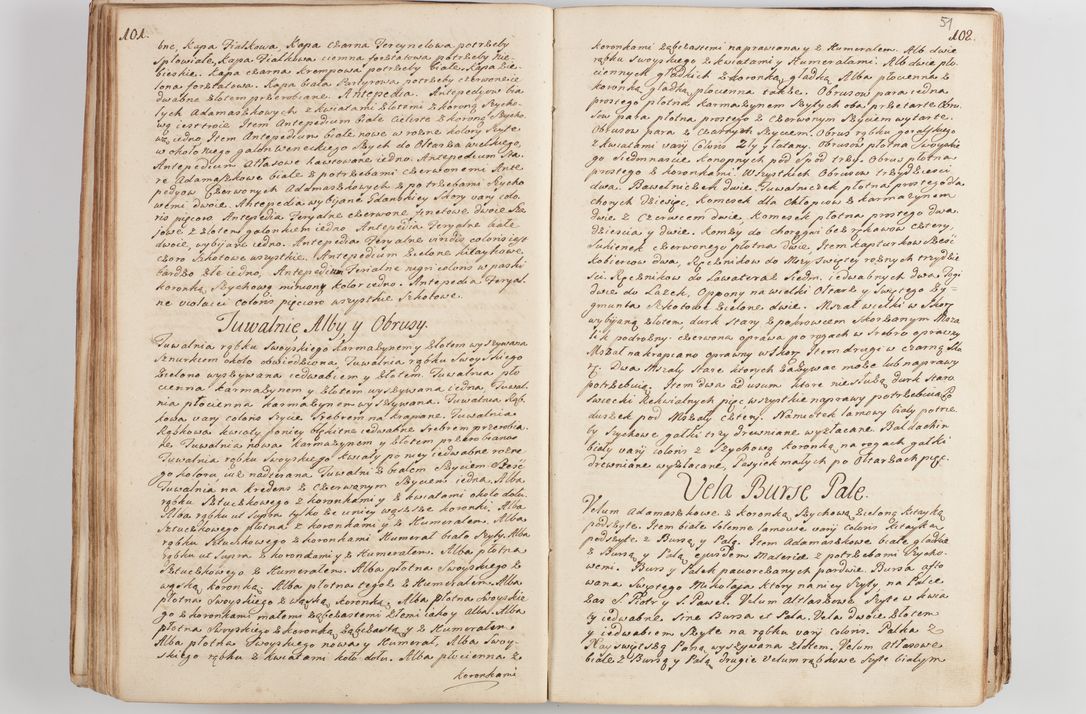 101.
bne, Kapa Fiałkowa, Kapa czarna Tercynelowa potrzeby
spłowiałe, Kapa Fiałkowa ciemna forsztatowa potrzeby nie-
bieskie. Kapa czarna krempowa potrzeby białe. Kapa zie-
lona forsztatowa. Kapa biała Partyrowa potrzeby czerwone ie-
dwabne złotem przerobiane. Antepedia. Antepedyow bia
łych Adamaszkowych z kwiatami złotemi z koroną Szycho-
wą iest troie. Item Antepedium białe Celiste z koroną Szycho-
wą iedno. Item Antepedium białe nowe w rozne kolory Szyte
w około niego galon weneckiego Szych do Ołtarza wielkiego,
Antepedium Atłasowe haftowane iedno. Antepedium Sta-
re Adamaszkowe białe z potrzebami czerwonemi Ante
pedyow Czerwonych Adamaszkowych z potrzebami Szycho
wemi dwoie. Antepedia wybijane Gdanskiey Skory varij colo-
ris pięcioro. Antepedia Feryalne czerwone
z złotem galonkiem iedno Antepedia Feryalne białe
dwoie, wybijane iedno. Antepedia Feryalne viridis coloris iest
czoro Szkotowe wszystkie. Antepedium Zielone kitaykowe
bardzo złe iedno, Antepedium Ferialne nigri coloris w paski
koronką Szychową kolor iedno. Antepedia Feryal-
ne violacei coloris pięcioro wszystkie Szkotowe.
Tuwalnie, Alby y Obrusy.
Tuwalnia rąbku Swoyskiego Karmazynem y złotem wyszywana
Sznurkiem około obwiedziona, Tuwalnia rąbku Swoyskiego
Zielono wyszywana iedwabiem y złotem. Tuwalnia płó
cienna Karmazynem y złotem wyszywana iedna. Tuwal-
nia płocienna Karmazynem wyszywana. Tuwalnia Rąb-
kowa vary coloris Szycie Srebrem nakrapiane. Tuwalnia
Rąbkowa kwiaty poniey błękitne iedwabne Srebrem przerobia-
ne. Tuwalnia nowa Karmazynem y złotem przerobiana
Tuwalnia rąbku Swoyskiego kwiaty po niey iedwabne rozne-
go koloru, iuż nadtarana Tuwalni z białem Szyciem Sześć
Tuwalnia na kredens z Czerwonym Szyciem iedna, Alba
rąbku Sztuczkowego z koronkami y z kwiatami około dołu.
Alba rąbku ut Supra tylko że u niey węższe koronki. Alba
Sztuczkowego płotna z koronkami y z Humerałem. Alba
rąbku Sztuczkowego z koronkami Humerał biało Szyty. Alba
rąbku ut Supra z koronkami y z Humerałem. Alba płotna
Sztuczkowego z Humerałem. Alba płotna Swoyskiego z
wąską koronką. Alba płotna tegoż z Humerałem. Alba
płotna Swoyskiego z wąską koronką, Alba płotna Swoyskie
go z koronkami małemi ząbczastemi Item taka y Alba. Alba
płotna Swoyskiego z koronką ząbczastą y z Humerałem
Alba płotna Swoyskiego nowa y Humerał, Alba Swoy-
skiego rąbku z kwiatami koło dołu. Alba płocienna z
koronkami
51
102.
koronkami ząbczastemi naprawiona y z Humerałem. Alb dwie
rąbku Swoyskiego z kwiatami y Humerałami. Alb dwie pło-
ciennych gładkich z koronką gładką, Alba płocienna z
koronką gładką płocienna także. Obrusow para iedna
prostego płotna Karmazynem Szytych oba przetarte. Obru-
sow para płotna prostego z czerwonym Szyciem wytarte.
Obrusow para z Czarnym Szyciem. Obrus rąbku goralskiego
z kwiatami varij Coloris zły y łatany. Obrusow płotna Swoyskie
go Siedmnascie Konopnych pod Spod trzy. Obrus płotna
prostego z koronkami. Wszystkich Obrusow trzydzieści
dwa. Bawelniczek dwie. Tuwalniczek płotna prostego da
chorych dziesięć, Komeżek dla Chłopcow z karmazynem
dwie z czerwcem dwie Komeżek płotna prostego dwa
dzieścia y dwie. Komży do choręgwi bez rękawow cztery,
Sukienek czerwonego płotna dwie Item kapturkow Sześć
Kobiercow dwa, Ręcznikow do Mszy Swiętey roznych trzydzie
sci. Ręcznikow do Lawaterza Siedm, iedwabnych dwa. Pugi
dwie do Łózek, Oppony na wielki Ołtarz y Swiętego Zy-
gmunta Szkotowe Zielone dwie. Mszał wielki w Skorę
wybijaną złotem, durk Stary z pokrowcem Skorzanym Msza
lik podrożny czerwona oprawa po rogach w Srebro oprawny
Mszał nakrapiano oprawny w Skorę Item drugi w czarną Sko
rę. Dwa Mszały Stare ktorych zażywać może lub naprawy
potrzebuią. Item dwa ad usum ktore nie Służą durk Staro
Swiecki Rekwialnych pięć wszystkie naprawy potrzebuią Po
duszek pod Mszały cztery. Namiotek lamowy biały potrze
by Szychowe gałki trzy drewniane wyzłacane. Baldachin
biały varij coloris z Szychową koronką na rogach gałki
drewniane wyzłacane, Pasyiek małych po Ołtarzach pięć.
Vela Burse Pale.
Velum adamaszkowe z koronką Szychową Zieloną kitayką
podszyte. Item białe Solenne lamowe varij coloris kitayką
podszyte z Bursą y Palą. Item Adamaszkowe białe gładkie
z Bursą y Palą eiusdem Materiæ z potrzebami Szycho-
wemi. Burs y Palek pawoczanych par dwie. Bursa afto
wana Swiętego Mikołaja ktory na niey Szyty na Palce
zaś S. Piotr y S. Paweł. Velum Atłasowe Szyte w kwia
ty iedwabne Sine Bursa et Pala. Vela dwoie złotem
y iedwabiem Szyte na rąbku varij coloris. Palka z
Nayświętszą Panną wyszywana złotem. Velum Atłasowe
białe z Bursą y Palą drugie Velum rąbkowe Szyte białym